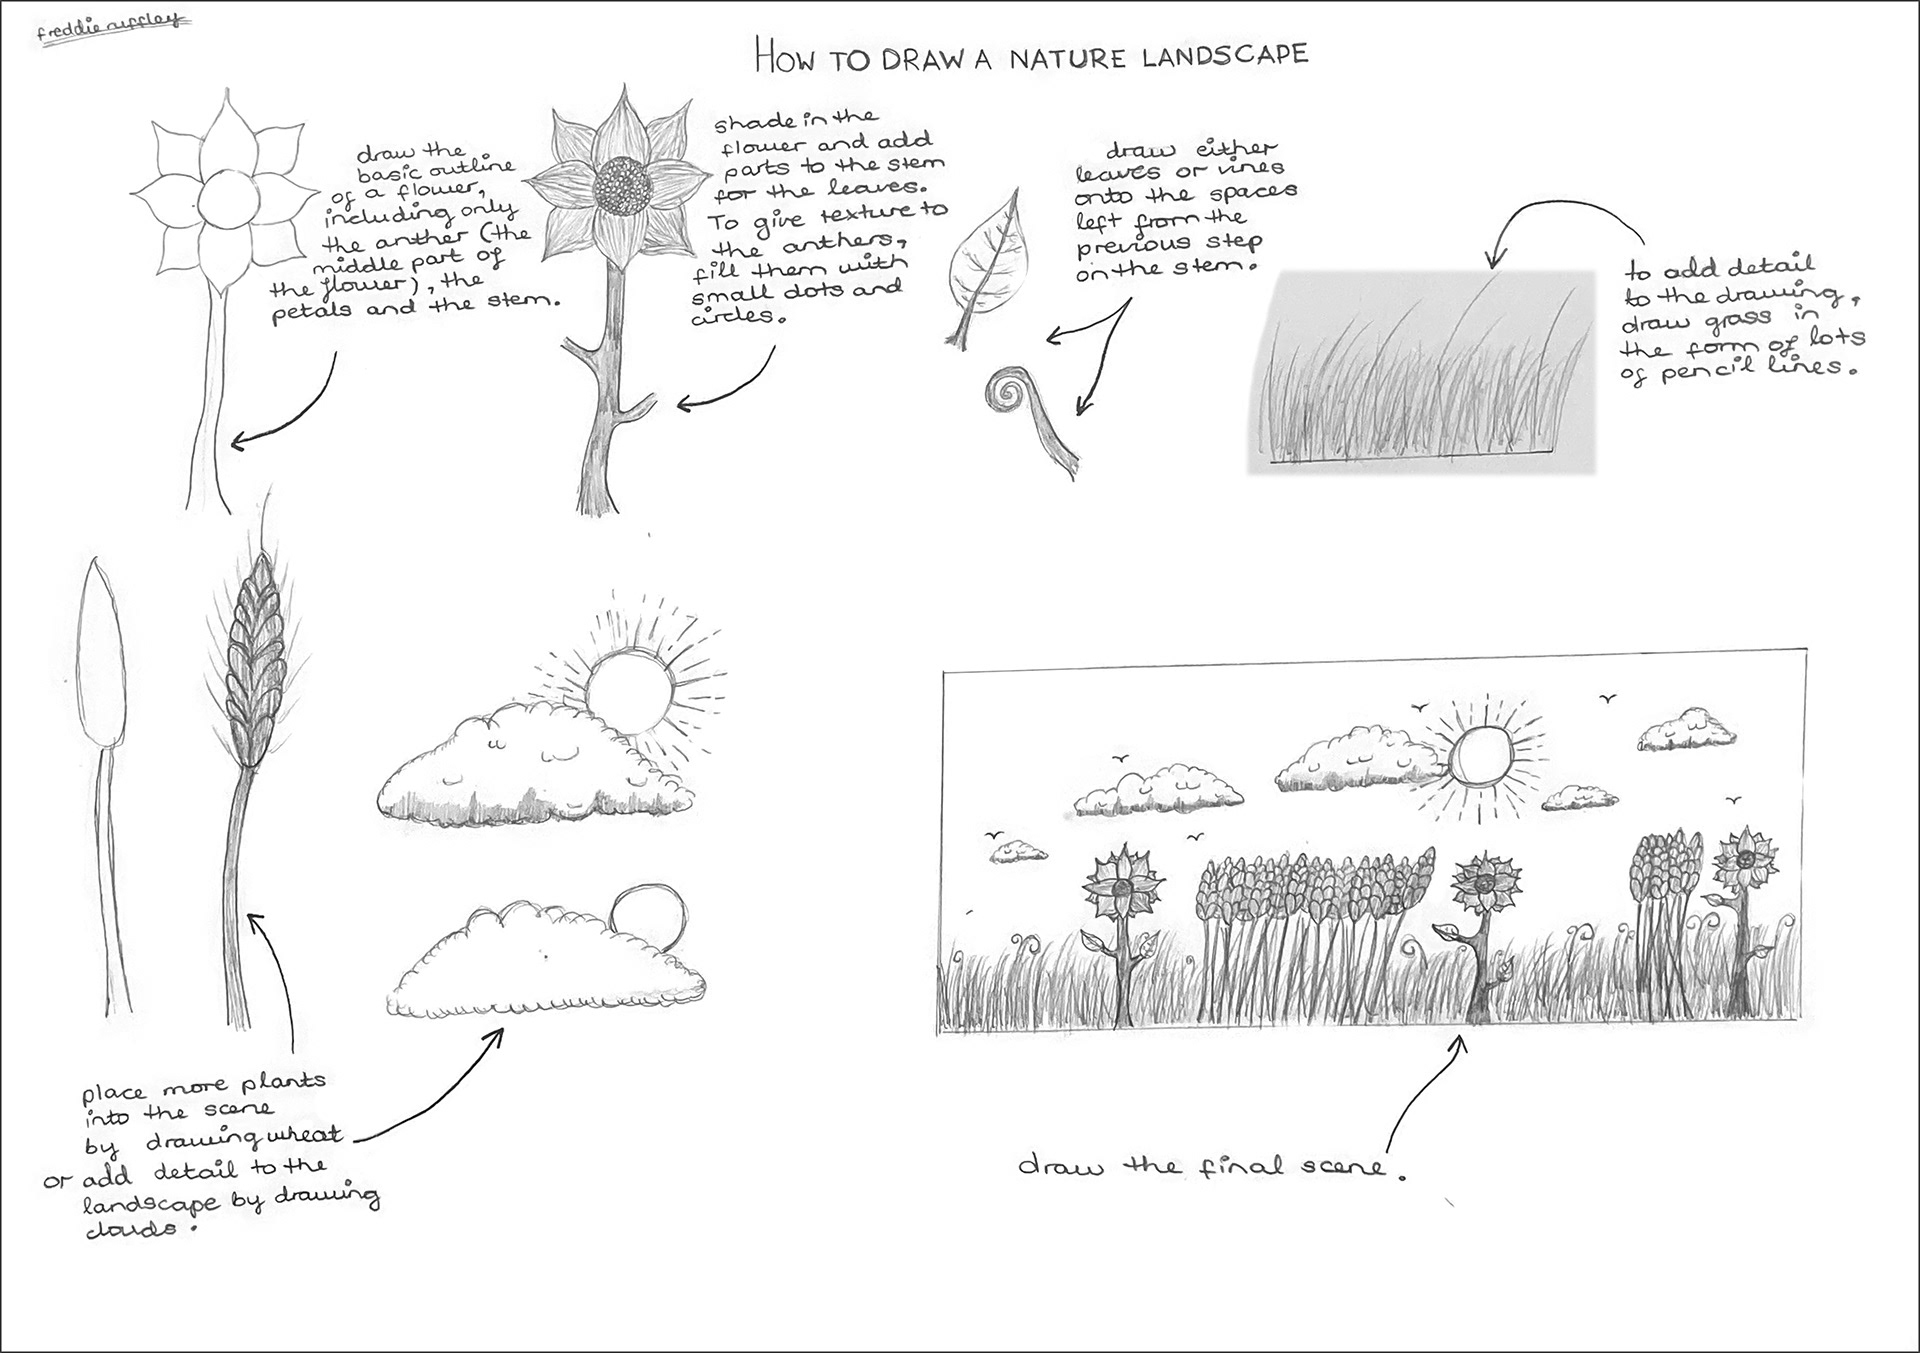 freddie
HOW TO DRAW A NATURE LANDSCAPE
draw the
basic outline
of a flower,
including only
the anther (the
middle part of
the flower), the
petals and the stem.
shade in the
flower and add
parts to the stem
for the leaves.
To give texture to
the anthers,
fill them with
small dots and
circles.
draw either
leaves or vines
onto the spaces
left from the
previous step
on the stem.
to add detail
to the drawing,
draw grass in
the form of lots
of pencil lines.
place more plants
into the scene
by drawing wheat
or add detail to the
landscape by drawing
clouds.
draw the final scene.